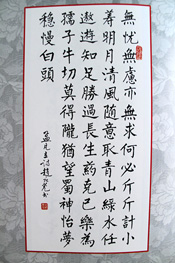 無憂無慮亦無求何必斤斤計小
籌明月清風隨意取青山綠水任
遨遊知足勝過長生藥克己樂為
孺子牛切莫得隴猶望蜀神怡夢
穩慢白頭